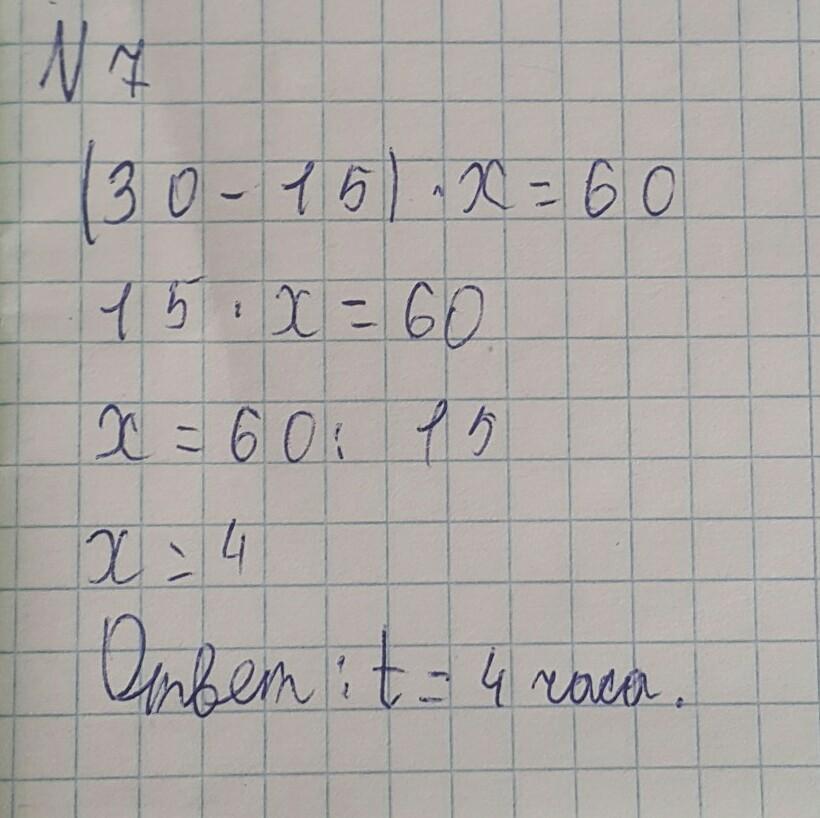 N 7
(30 - 15) · x = 60
15 · x = 60
x = 60 : 15
x = 4
Ответ : t = 4 часа.